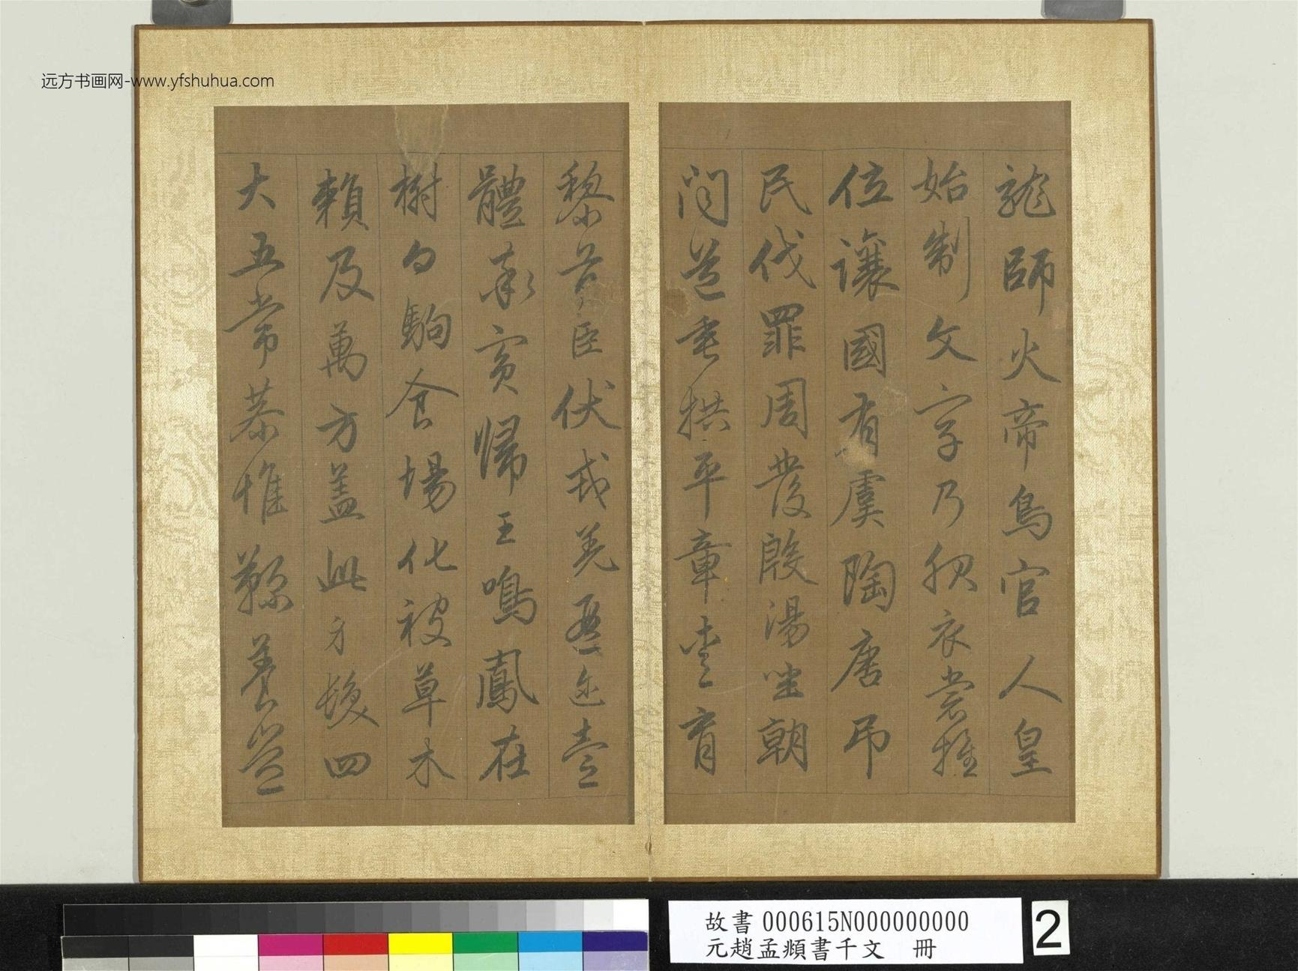 远方书画网-www.yfshuhua.com
龍師火帝鳥官人皇
始制文字乃服衣裳推
位讓國有虞陶唐吊
民伐罪周發殷湯坐朝
問道垂拱平章愛育
黎首臣伏戎羌遐迩壹
體率賓歸王鳴鳳在
樹白駒食場化被草木
賴及萬方蓋此身髮四
大五常恭惟鞠養豈
故書 000615N000000000
元趙孟頫書千文 冊
2